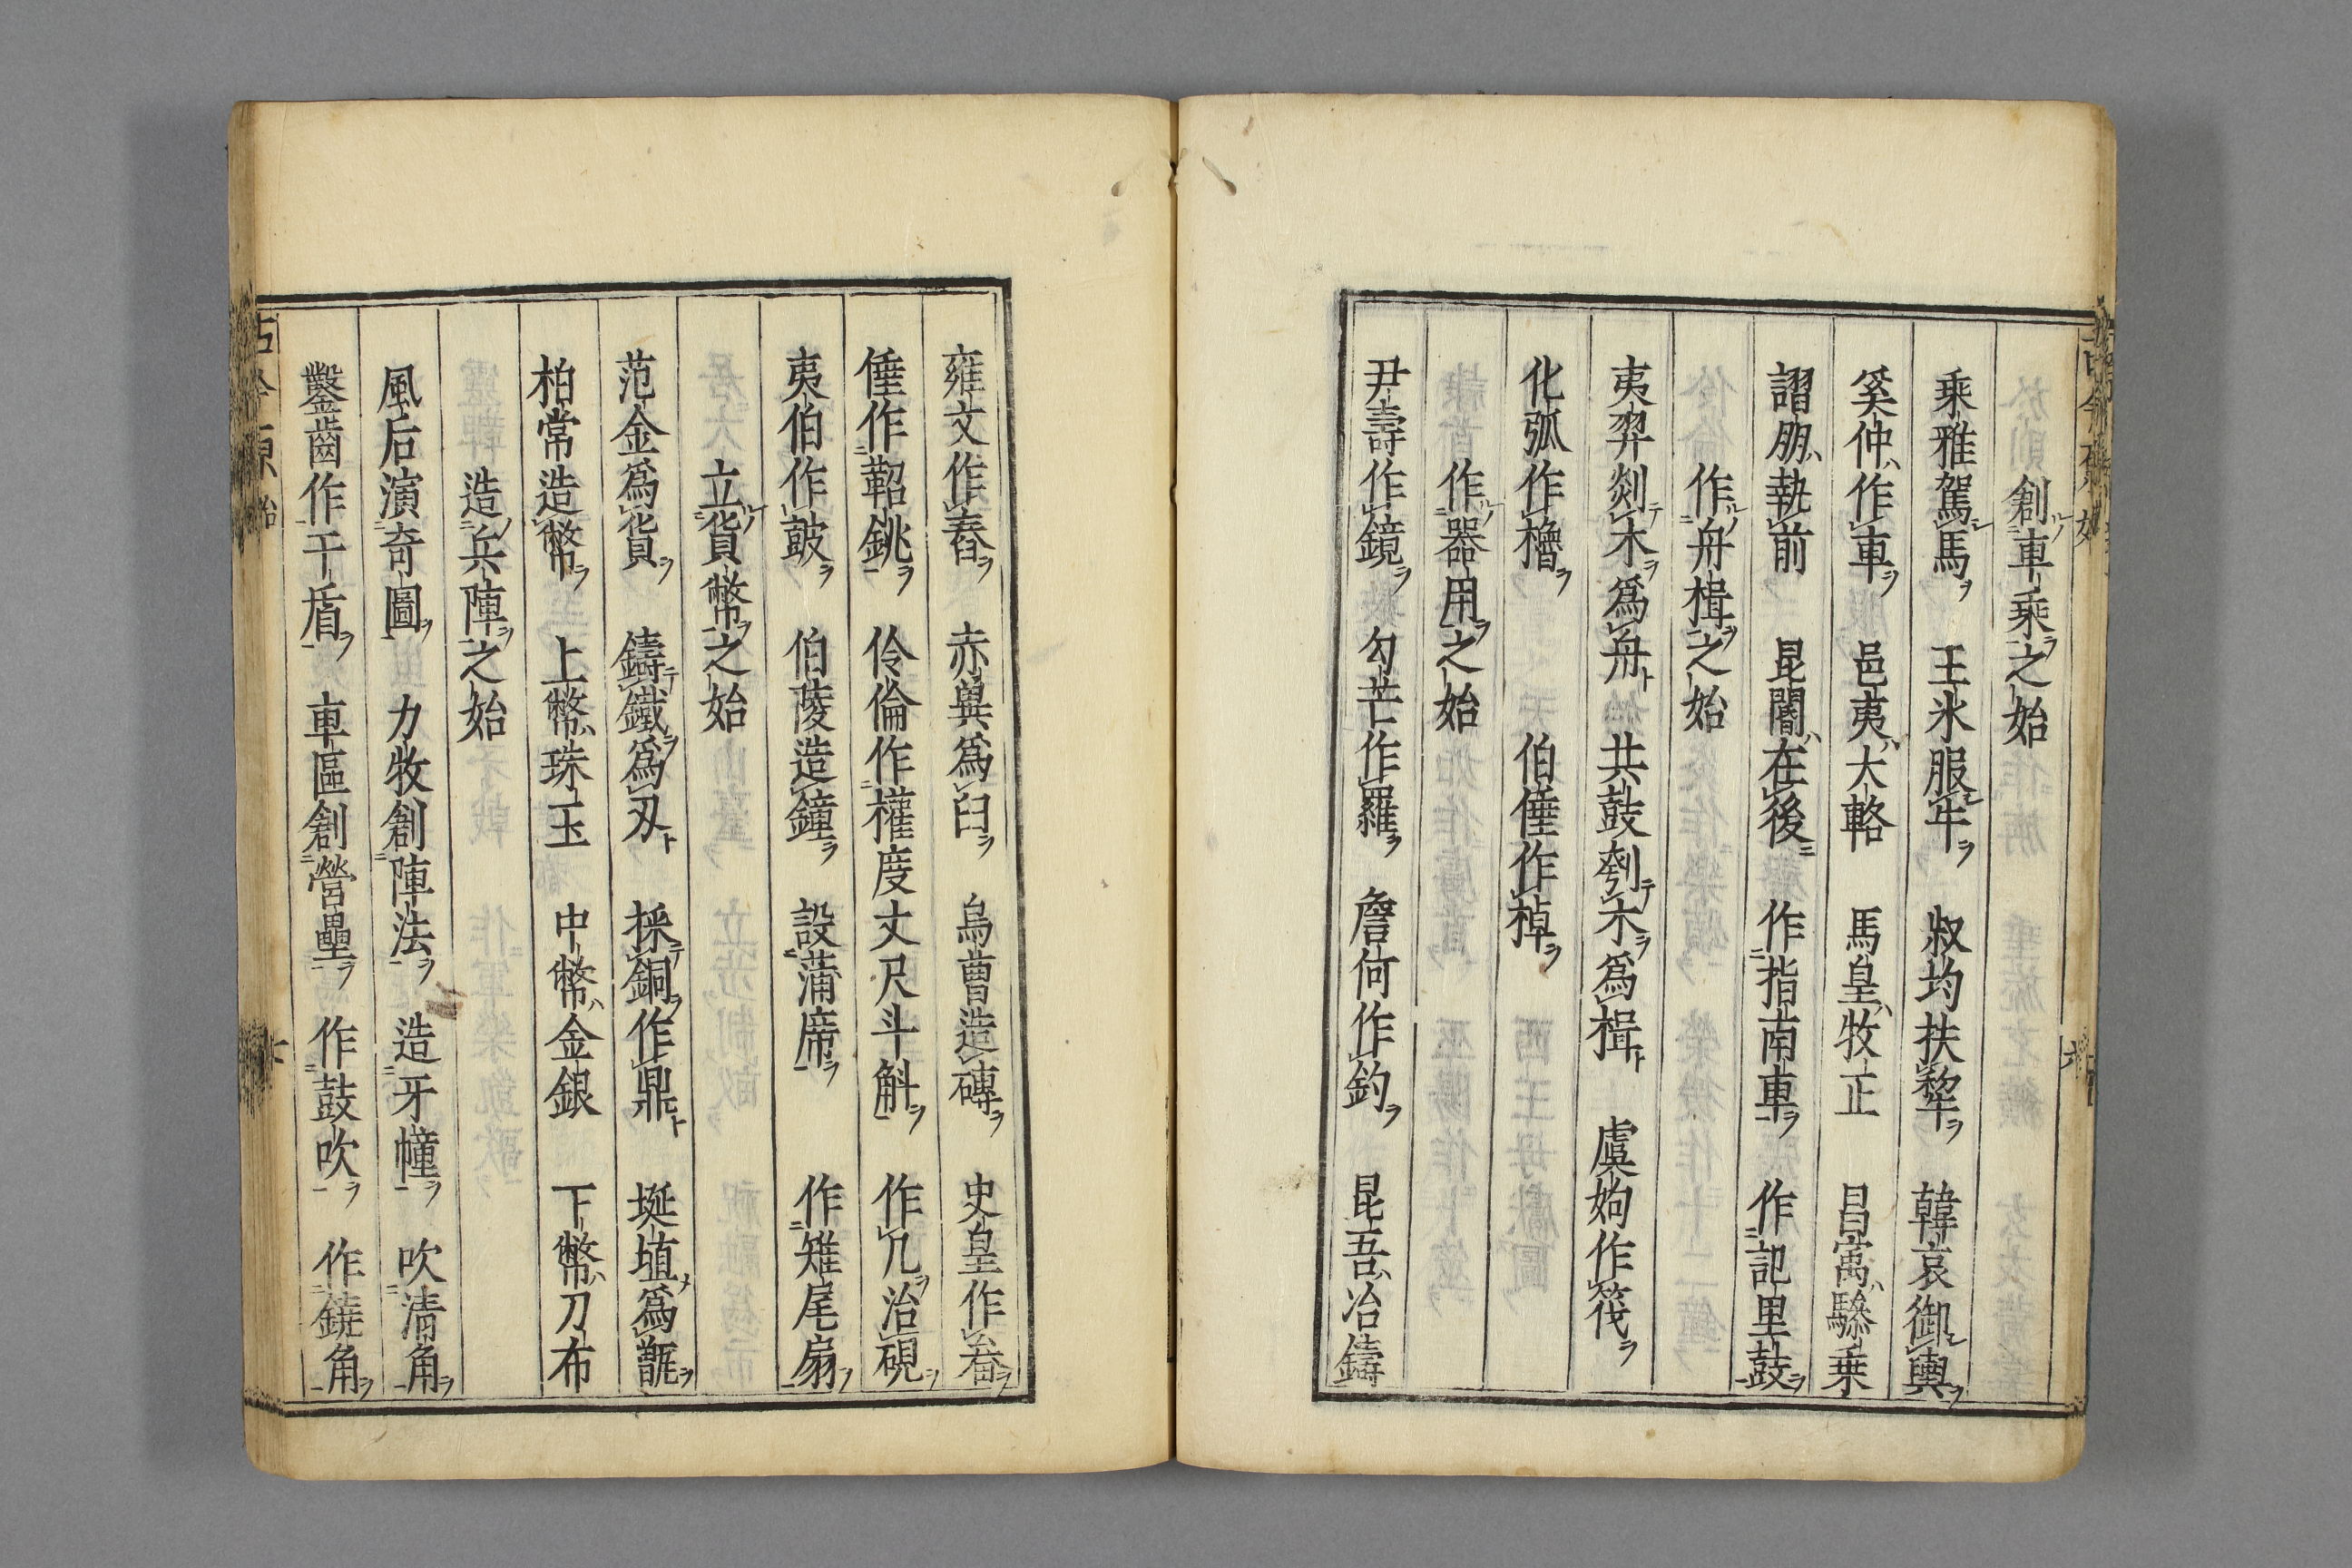 創車乘之始
乘雅駕馬 王氷服牢 叔均扶犂 韓哀御輿
奚仲作車 邑夷大輅 馬皇牧正 昌㝢驂乗
謵朋執前 昆閽在後 作指南車 作記里鼓
作舟楫之始
夷羿剡木爲舟 共鼓刳木爲楫 虞姁作筏
化狐作櫓 伯倕作棹
作器用之始
尹壽作鏡 勾芒作羅 詹何作釣 昆吾冶鑄
雍文作舂 赤兾爲臼 烏曹造磚 史皇作畚
倕作鞀銚 伶倫作權度丈尺斗斛 作几治硯
夷伯作鼓 伯陵造鐘 設蒲席 作雉尾扇
立貨幣之始
范金爲貨 鑄鐵爲刃 採銅作鼎 埏埴爲甑
柏常造幣 上幣珠玉 中幣金銀 下幣刀布
造兵陣之始
風后演奇圖 力牧創陣法 造牙幢 吹清角
鑿齒作干盾 車區創營壘 作鼓吹 作鐃角
古今原始